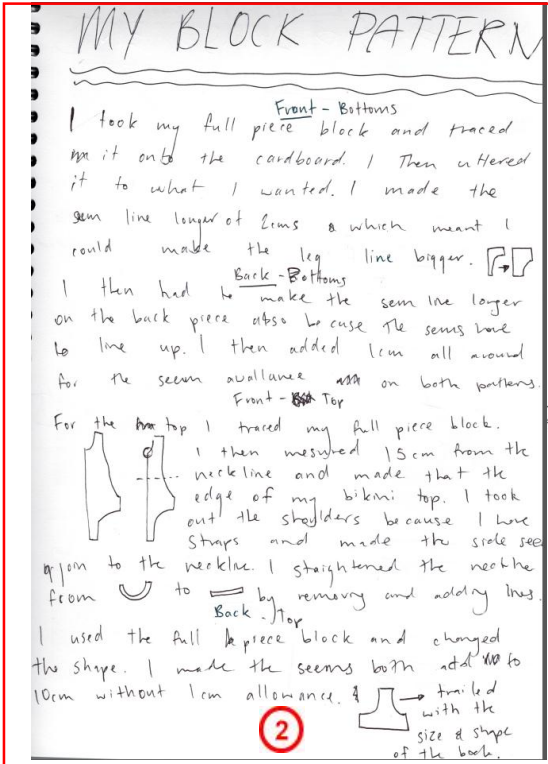 MY BLOCK PATTERN
Front - Bottoms
I took my full piece block and traced
it onto the cardboard. I Then ultered
it to what I wanted. I made the
sem line longer of 2cms & which meant I
could make the leg line bigger.
Back - Bottoms
I then had to make the sem line longer
on the back piece also because The sems have
to line up. I then added 1cm all around
for the seem avallance on both patterns.
Front - Top
For the top I traced my full piece block.
I then mesured 15cm from the
neckline and made that the
edge of my bikini top. I took
out the shoulders because I have
Straps and made the side see
join to the neckline. I staightened the neckline
from to by removing and adding lines.
Back - Top
I used the full piece block and changed
the shape. I made the seems both to
10cm without 1cm allowance.
trailed
with the
size & shape
of the back.
2